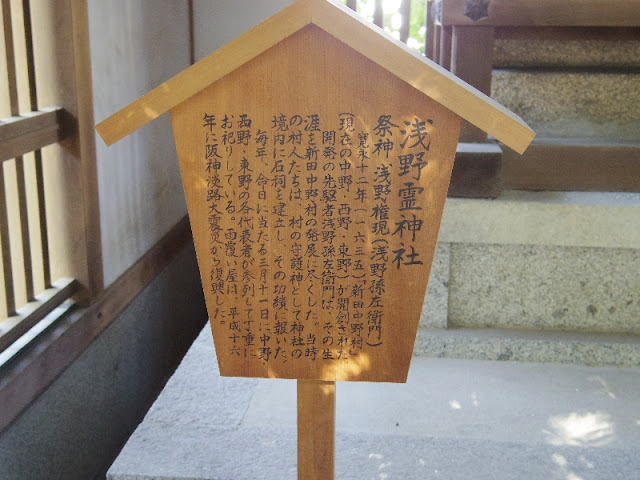 浅野霊神社
祭神 浅野権現(浅野孫左衛門)
寛永十二年(一六三五)新田中野村
(現在の中野・西野・東野)が開創された。
開発の先駆者浅野孫左衛門は、その生
涯を新田中野村の発展に尽くした。当時
の村人たちは、村の守護神として神社の
境内に石祠を建立し、その功績に報いた。
毎年、命日に当たる三月十一日に、中野・
西野・東野の各代表者が参列して丁重に
お祀りしている。雨覆い屋は、平成十六
年に阪神淡路大震災から復興した。